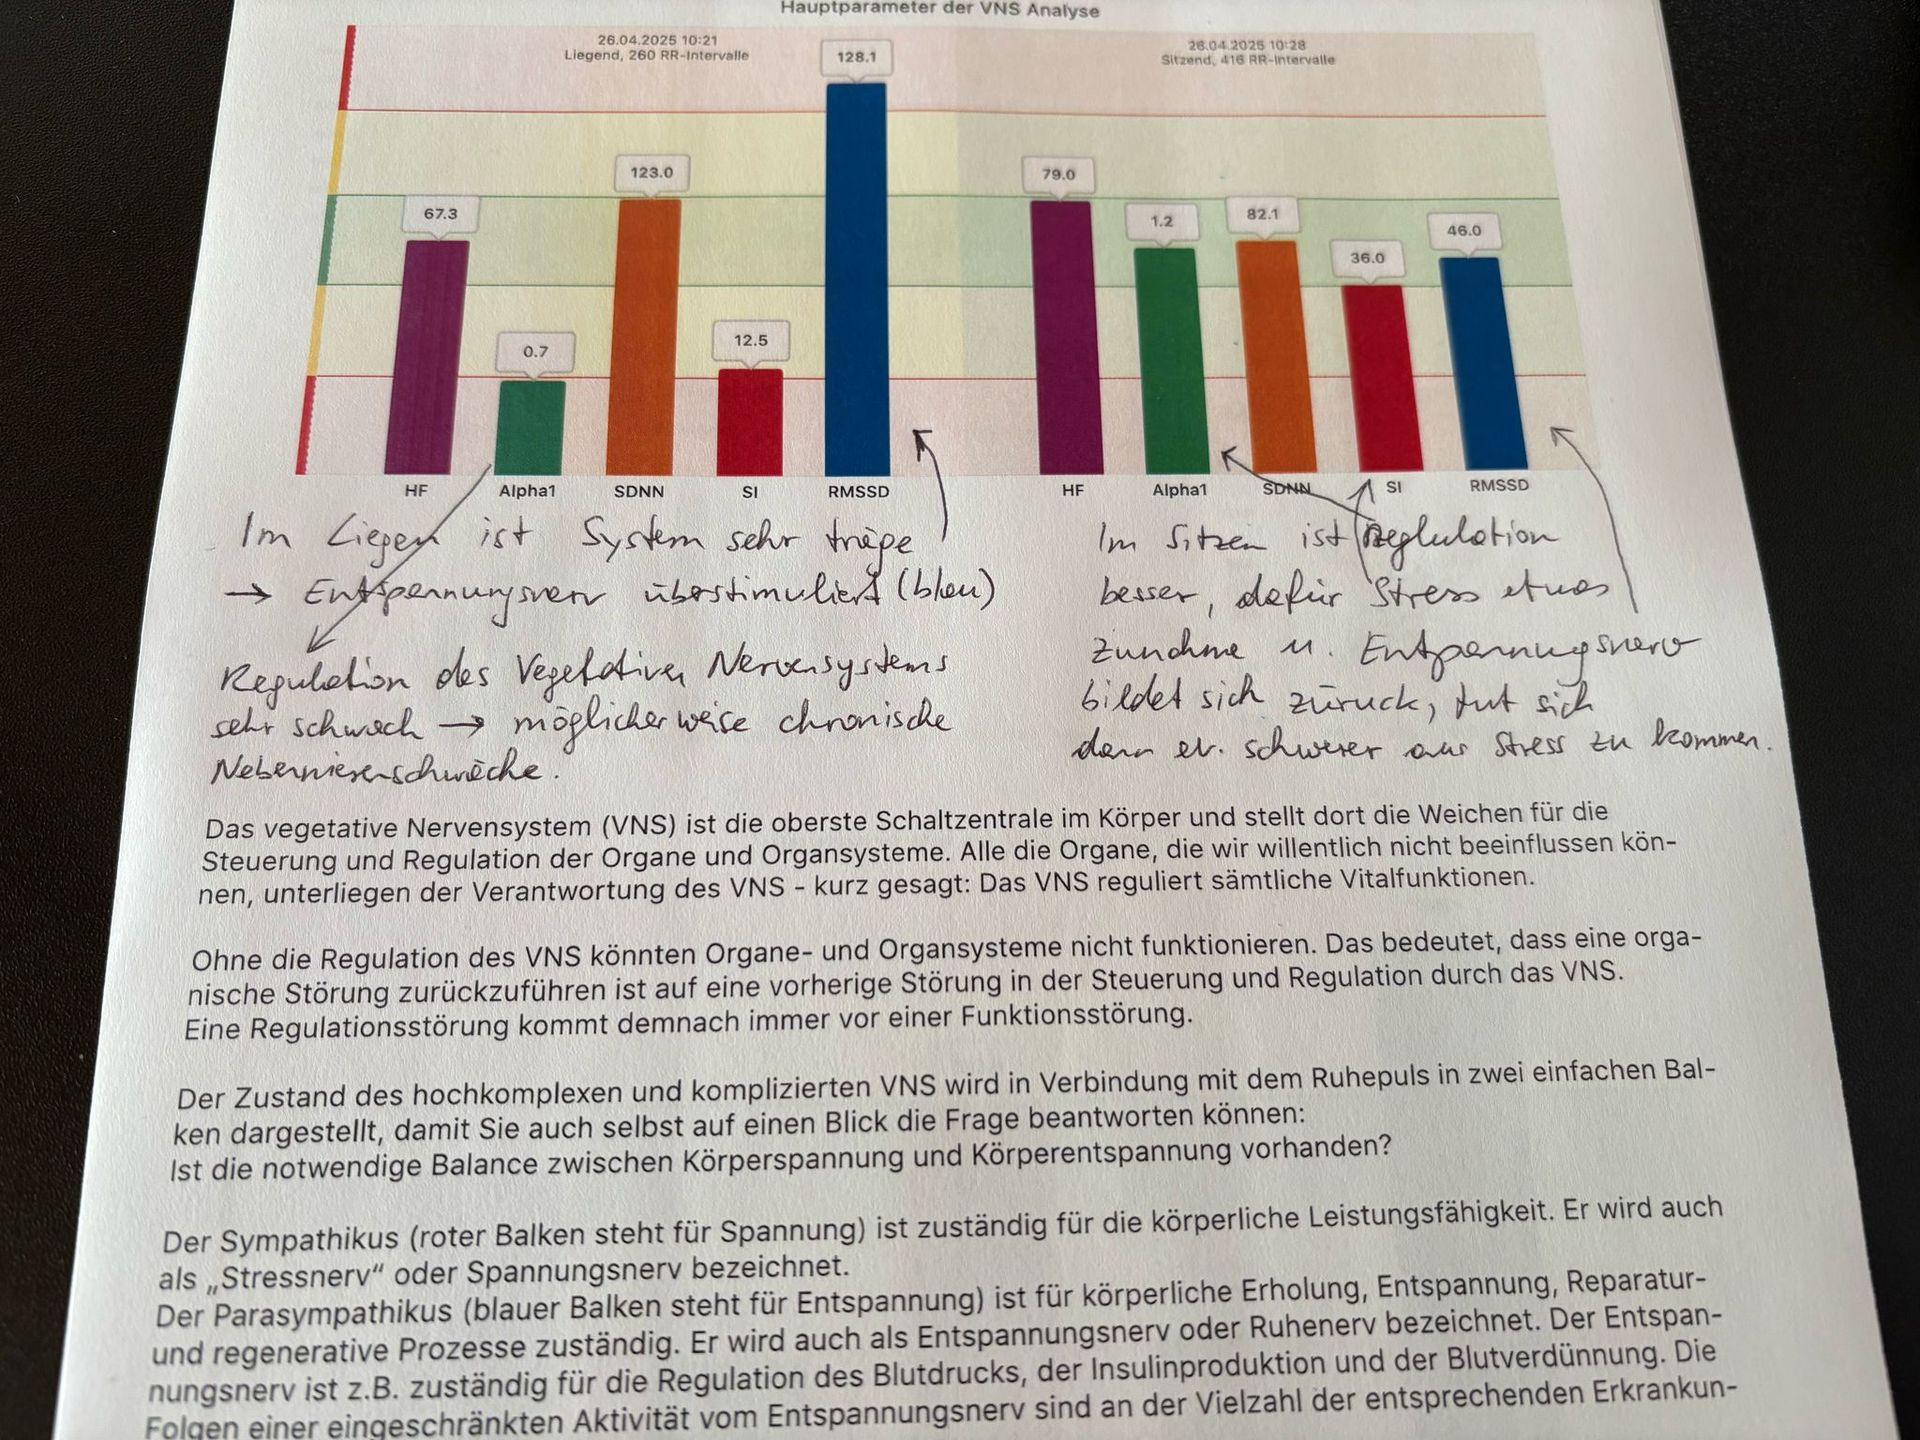 Hauptparameter der VNS Analyse
26.04.2025 10:21
Liegend, 260 RR-Intervalle
67.3
0.7
123.0
12.5
128.1
HF
Alpha1
SDNN
SI
RMSSD
26.04.2025 10:28
Sitzend, 416 RR-Intervalle
79.0
1.2
82.1
36.0
46.0
HF
Alpha1
SDNN
SI
RMSSD
Im Liegen ist System sehr träge
→ Entspannungsnerv überstimuliert (blau)
Regulation des Vegetativen Nervensystems
sehr schwach → möglicherweise chronische
Nebennierenschwäche.
Im Sitzen ist Reglulation
besser, dafür Stress etwas
zunahme u. Entspannungsnerv
bildet sich zurück, tut sich
dann ev. schwerer aus Stress zu kommen.
Das vegetative Nervensystem (VNS) ist die oberste Schaltzentrale im Körper und stellt dort die Weichen für die
Steuerung und Regulation der Organe und Organsysteme. Alle die Organe, die wir willentlich nicht beeinflussen kön-
nen, unterliegen der Verantwortung des VNS - kurz gesagt: Das VNS reguliert sämtliche Vitalfunktionen.
Ohne die Regulation des VNS könnten Organe- und Organsysteme nicht funktionieren. Das bedeutet, dass eine orga-
nische Störung zurückzuführen ist auf eine vorherige Störung in der Steuerung und Regulation durch das VNS.
Eine Regulationsstörung kommt demnach immer vor einer Funktionsstörung.
Der Zustand des hochkomplexen und komplizierten VNS wird in Verbindung mit dem Ruhepuls in zwei einfachen Bal-
ken dargestellt, damit Sie auch selbst auf einen Blick die Frage beantworten können:
Ist die notwendige Balance zwischen Körperspannung und Körperentspannung vorhanden?
Der Sympathikus (roter Balken steht für Spannung) ist zuständig für die körperliche Leistungsfähigkeit. Er wird auch
als „Stressnerv“ oder Spannungsnerv bezeichnet.
Der Parasympathikus (blauer Balken steht für Entspannung) ist für körperliche Erholung, Entspannung, Reparatur-
und regenerative Prozesse zuständig. Er wird auch als Entspannungsnerv oder Ruhenerv bezeichnet. Der Entspan-
nungsnerv ist z.B. zuständig für die Regulation des Blutdrucks, der Insulinproduktion und der Blutverdünnung. Die
Folgen einer eingeschränkten Aktivität vom Entspannungsnerv sind an der Vielzahl der entsprechenden Erkrankun-